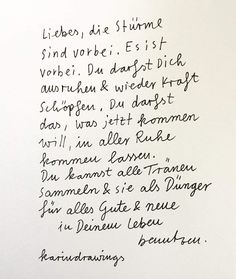 Liebes, die Stürme
sind vorbei. Es ist
vorbei. Du darfst Dich
ausruhen & wieder Kraft
schöpfen. Du darfst
das, was jetzt kommen
will, in aller Ruhe
kommen lassen.
Du kannst alle Tränen
sammeln & sie als Dünger
für alles Gute & neue
in Deinem Leben
benutzen.
karindrawings